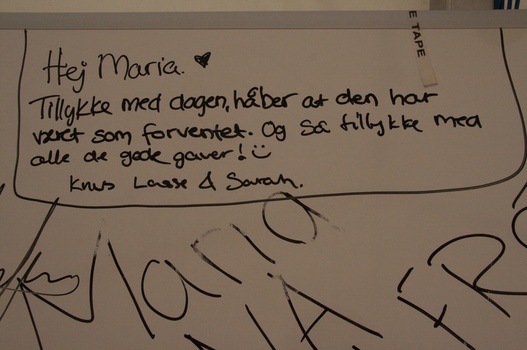 E TAPE
Hej Maria. ♥
Tillykke med dagen, håber at den har
været som forventet. Og så tillykke med
alle de gode gaver! ☺
Knus Lasse & Sarah.
Maria